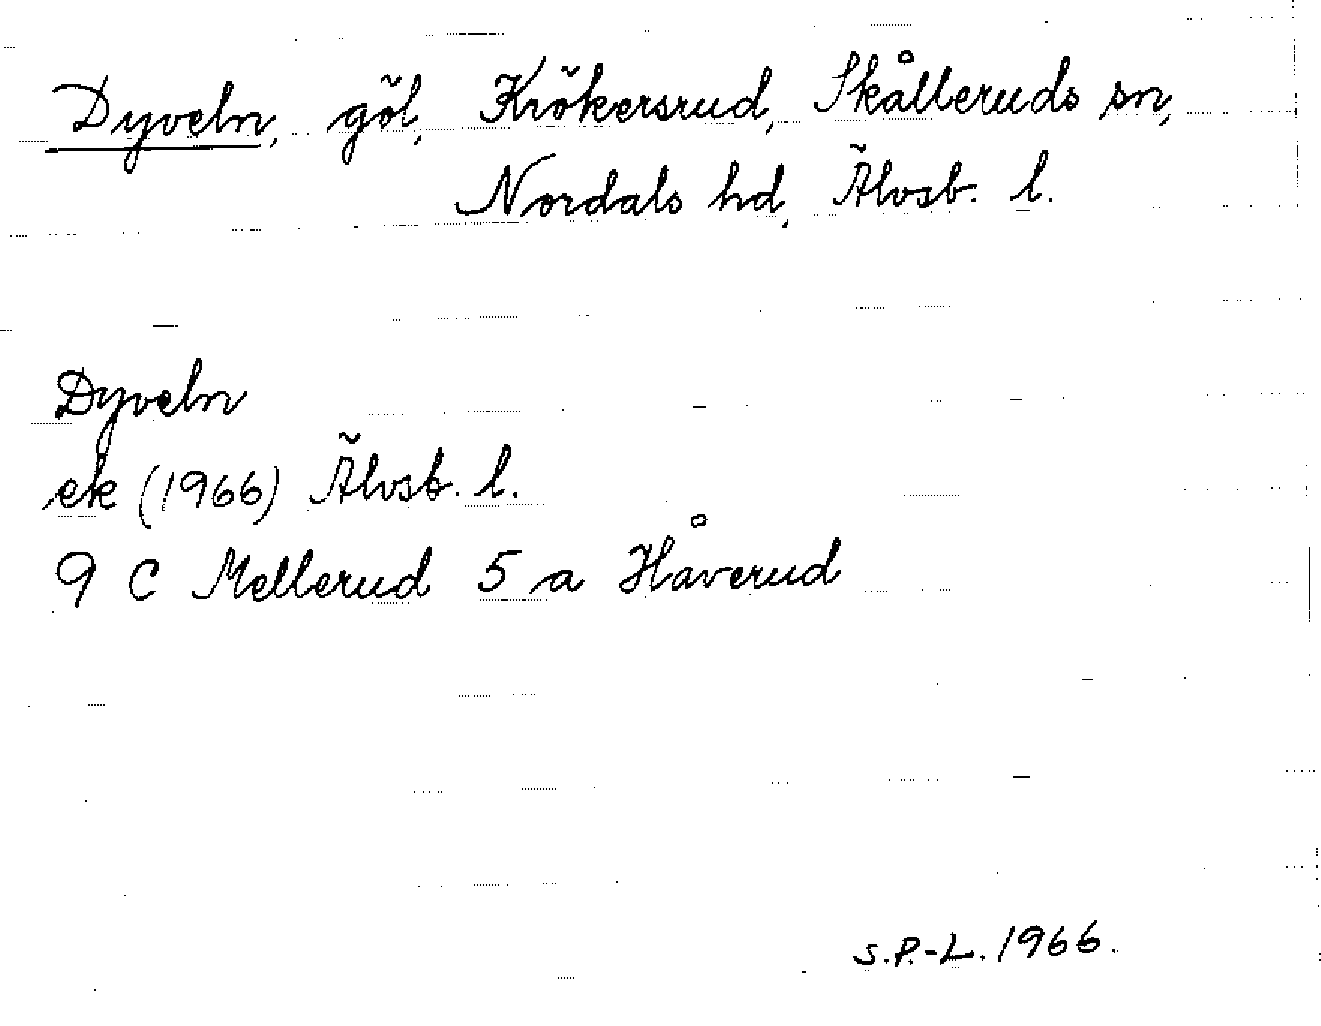 Dyveln, göl, Krökersrud, Skålleruds sn,
Nordals hd, Älvsb. l.
Dyveln
ek (1966) Älvsb. l.
9 C Mellerud 5 a Håverud
S.P.-L. 1966.